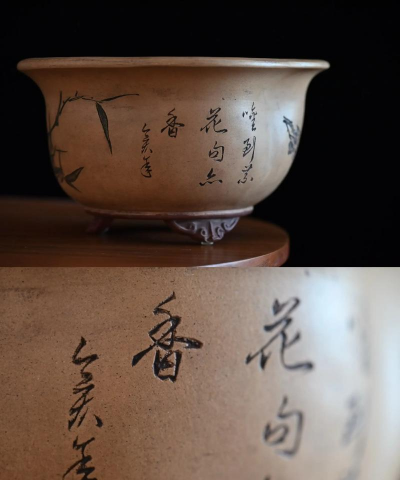 唫到
花句亦
香
乙亥年
花句
香
乙亥年